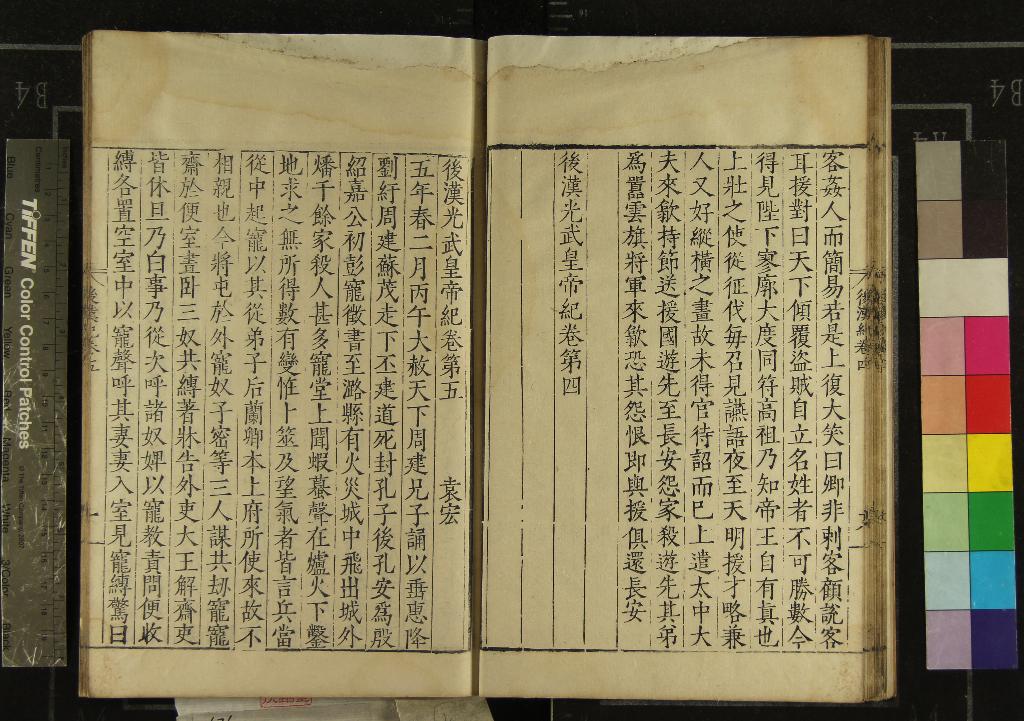 客姦人而簡易若是上復大笑曰卿非刺客顧說客
耳援對曰天下傾覆盜賊自立名姓者不可勝數今
得見陛下寥廓大度同符高祖乃知帝王自有真也
上壯之使從征伐每召見讌語夜至天明援才略兼
人又好縱橫之畫故未得官待詔而已上遣太中大
夫來歙持節送援國遊先至長安怨家殺遊先其弟
爲囂雲旗將軍來歙恐其怨恨即與援俱還長安
後漢光武皇帝紀卷第四
後漢紀卷四
後漢光武皇帝紀卷第五 袁宏
五年春二月丙午大赦天下周建兄子誦以垂惠降
劉紆周建蘇茂走下丕建道死封孔子後孔安爲殷
紹嘉公初彭寵徵書至潞縣有火災城中飛出城外
燔千餘家殺人甚多寵堂上聞蝦蟇聲在爐火下鑿
地求之無所得數有變惟卜筮及望氣者皆言兵當
從中起寵以其從弟子后蘭卿本上府所使來故不
相親也令將屯於外寵奴子密等三人謀共劫寵寵
齋於便室晝卧三奴共縛著牀告外吏大王解齋吏
皆休旦乃白事乃從次呼諸奴婢以寵教責問便收
縛各置空室中以寵聲呼其妻妻入室見寵縛驚曰
後漢紀卷五
TIFFEN Color Control Patches
Blue
Cyan
Green
Yellow
Red
Magenta
White
3/Color
Black
Centimetres
Inches
B4
B4
A4